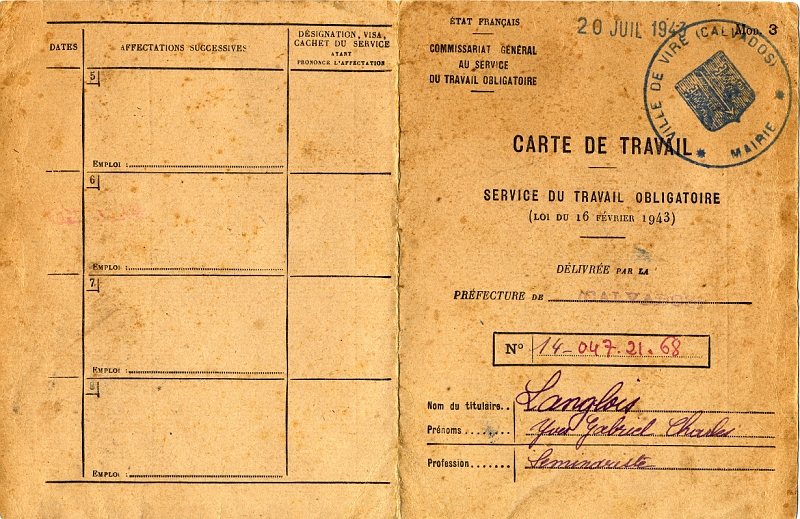 DATES
AFFECTATIONS SUCCESSIVES
DÉSIGNATION, VISA,
CACHET DU SERVICE
AYANT
PRONONCÉ L'AFFECTATION
5
EMPLOI :
6
EMPLOI :
7
EMPLOI :
8
EMPLOI :
ÉTAT FRANÇAIS
COMMISSARIAT GÉNÉRAL
AU SERVICE
DU TRAVAIL OBLIGATOIRE
20 JUIL 1943
MOD. 3
VILLE DE VIRE (CALVADOS)
* MAIRIE *
CARTE DE TRAVAIL
SERVICE DU TRAVAIL OBLIGATOIRE
(LOI DU 16 FÉVRIER 1943)
DÉLIVRÉE PAR LA
PRÉFECTURE DE
N° 14-047.21.68
Nom du titulaire.. Langlois
Prénoms........ Yves Gabriel Charles
Profession....... Séminariste